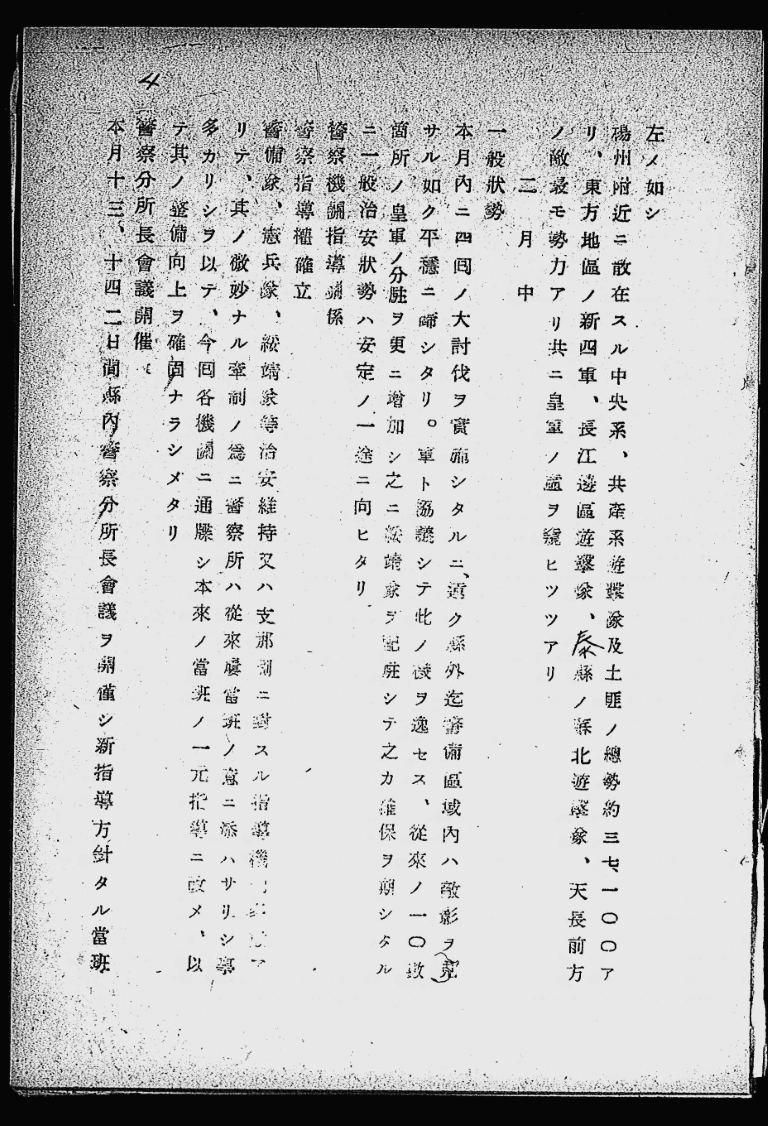 左ノ如シ
揚州附近ニ散在スル中央系、共產系遊擊隊及土匪ノ總勢約三七、一〇〇ア
リ、東方地區ノ新四軍、長江邊區遊擊隊、泰縣ノ蘇北遊擊隊、天長前方
ノ敵最モ勢力アリ共ニ皇軍ノ虛ヲ窺ヒツツアリ
二月中
一般狀勢
本月內ニ四囘ノ大討伐ヲ實施シタルニ、遠ク縣外迄警備區域內ハ敵影ヲ見
サル如ク平穩ニ歸シタリ。軍ト協議シテ此ノ機ヲ逸セス、從來ノ一〇數
箇所ノ皇軍ノ分駐ヲ更ニ增加シ之ニ綏靖隊ヲ配駐シテ之カ確保ヲ期シタル
ニ一般治安狀勢ハ安定ノ一途ニ向ヒタリ
警察機關指導關係
警察指導權確立
警備隊、憲兵隊、綏靖隊等治安維持又ハ支那側ニ對スル指導機
リテ、其ノ微妙ナル牽制ノ爲ニ警察所ハ從來屢當班ノ意ニ添ハサリシ事
多カリシヲ以テ、今囘各機關ニ通牒シ本來ノ當班ノ一元指導ニ改メ、以
テ其ノ整備向上ヲ確固ナラシメタリ
警察分所長會議開催
本月十三、十四二日間縣內警察分所長會議ヲ開催シ新指導方針タル當班
4